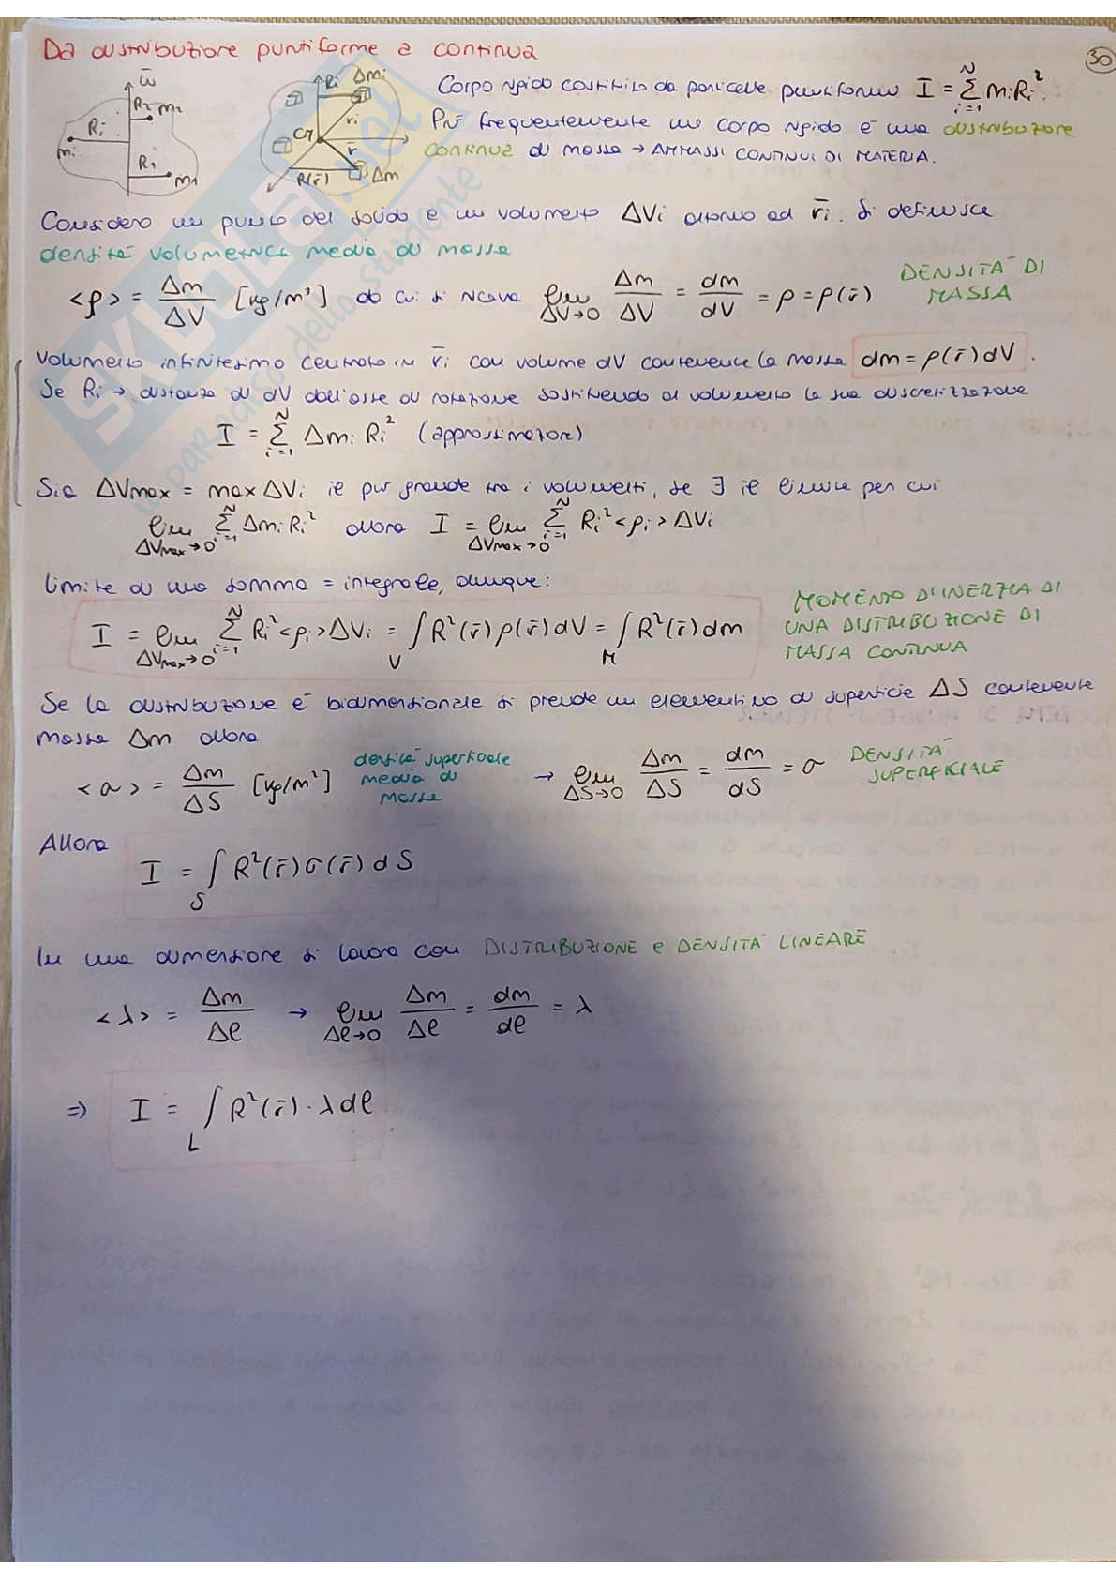 30
Da distribuzione puntiforme a continua
ω̄
R₂ m₂
Ri
mi
R₁
m₁
Ri Δmi
r̄i
CM
r̄
R(r̄) Δm
Corpo rigido costituito da particelle puntiformi I = Σ_{i=1}^{N} mi Ri².
Più frequentemente un corpo rigido è una distribuzione
continua di massa → AMMASSI CONTINUI DI MATERIA.
Considero un punto del solido e un volumetto ΔVi attorno ad r̄i. Si definisce
densità volumetrica media di massa
<ρ> = Δm/ΔV [kg/m³] da cui si ricava lim_{ΔV→0} Δm/ΔV = dm/dV = ρ = ρ(r̄) DENSITÀ DI MASSA
Volumetto infinitesimo centrato in r̄i con volume dV contenente la massa dm = ρ(r̄)dV.
Se Ri → distanza di dV dall'asse di rotazione sostituendo al volumetto la sua discretizzazione
I = Σ_{i=1}^{N} Δmi Ri² (approssimazione)
Sia ΔVmax = max ΔVi il più grande tra i volumetti, se ∃ il limite per cui
lim_{ΔVmax→0} Σ_{i=1}^{N} Δmi Ri² allora I = lim_{ΔVmax→0} Σ_{i=1}^{N} Ri² <ρi> ΔVi
Limite di una somma = integrale, dunque:
I = lim_{ΔVmax→0} Σ_{i=1}^{N} Ri² <ρi> ΔVi = ∫_V R²(r̄) ρ(r̄) dV = ∫_M R²(r̄) dm
MOMENTO D'INERZIA DI
UNA DISTRIBUZIONE DI
MASSA CONTINUA
Se la distribuzione è bidimensionale si prende un elementino di superficie ΔS contenente
massa Δm allora
<σ> = Δm/ΔS [kg/m²] densità superficiale media di massa → lim_{ΔS→0} Δm/ΔS = dm/dS = σ DENSITÀ SUPERFICIALE
Allora
I = ∫_S R²(r̄) σ(r̄) dS
In una dimensione si lavora con DISTRIBUZIONE e DENSITÀ LINEARE
<λ> = Δm/Δl → lim_{Δl→0} Δm/Δl = dm/dl = λ
⇒ I = ∫_L R²(r̄) · λ dl